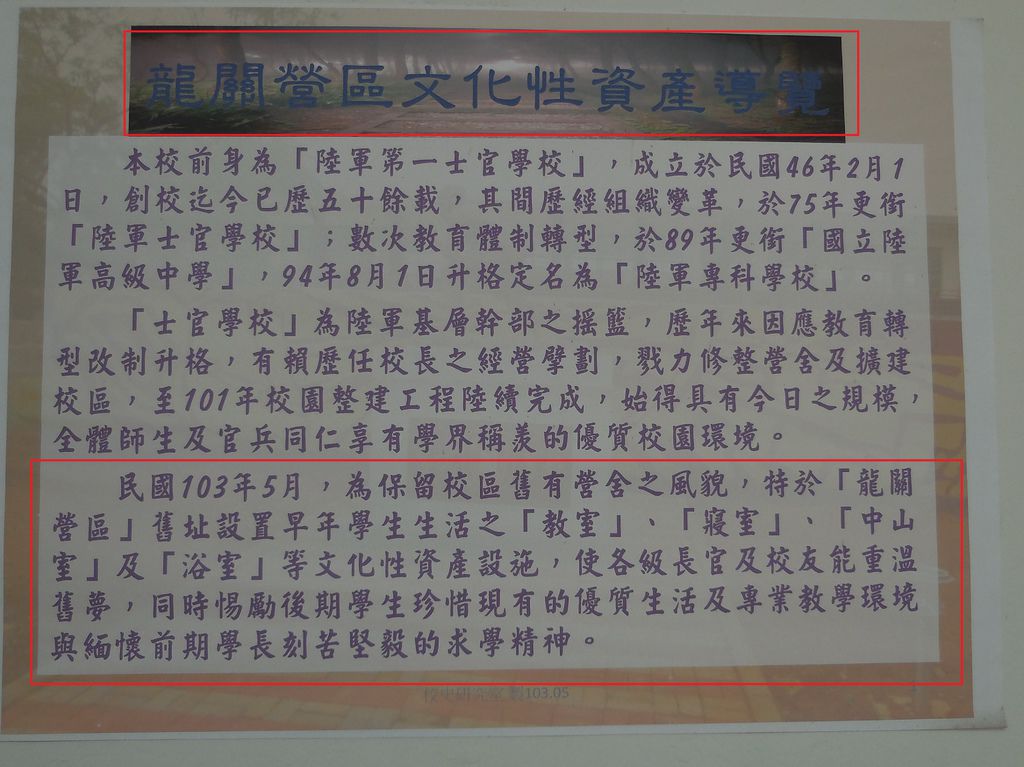 龍關營區文化性資產導覽
本校前身為「陸軍第一士官學校」，成立於民國46年2月1
日，創校迄今已歷五十餘載，其間歷經組織變革，於75年更銜
「陸軍士官學校」；數次教育體制轉型，於89年更銜「國立陸
軍高級中學」，94年8月1日升格定名為「陸軍專科學校」。
「士官學校」為陸軍基層幹部之搖籃，歷年來因應教育轉
型改制升格，有賴歷任校長之經營擘劃，戮力修整營舍及擴建
校區，至101年校園整建工程陸續完成，始得具有今日之規模，
全體師生及官兵同仁享有學界稱羨的優質校園環境。
民國103年5月，為保留校區舊有營舍之風貌，特於「龍關
營區」舊址設置早年學生生活之「教室」、「寢室」、「中山
室」及「浴室」等文化性資產設施，使各級長官及校友能重溫
舊夢，同時惕勵後期學生珍惜現有的優質生活及專業教學環境
與緬懷前期學長刻苦堅毅的求學精神。
校史研究室 製103.05